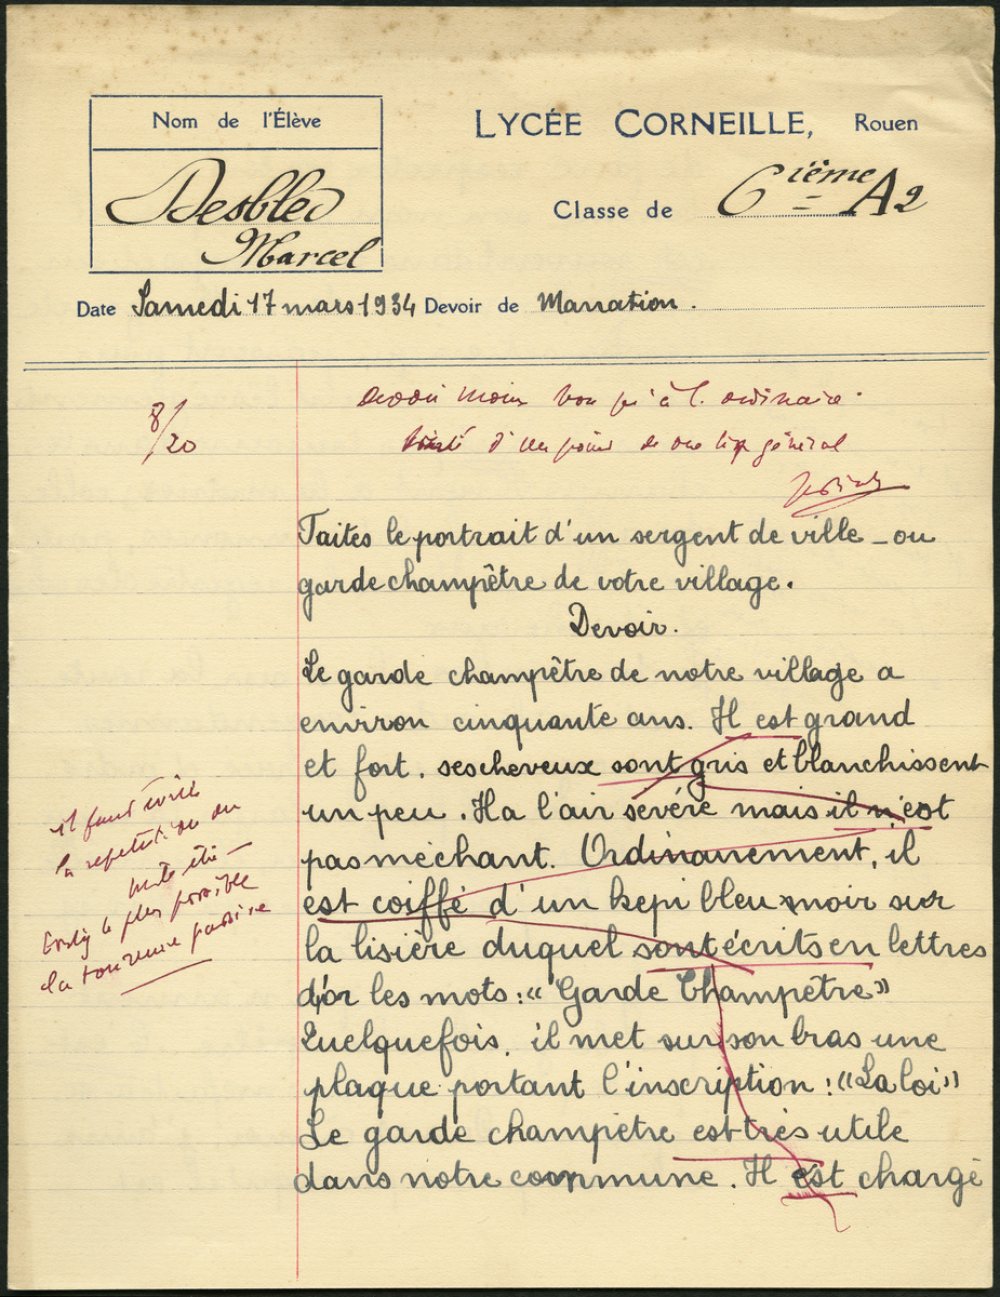 Nom de l'Élève
LYCÉE CORNEILLE, Rouen
Desbled
Marcel
Classe de 6ième A2
Date Samedi 17 mars 1934 Devoir de Narration.
8/20
devoir moins bon qu'à l'ordinaire.
d'un point de vue trop général
Faites le portrait d'un sergent de ville _ ou
garde champêtre de votre village.
Devoir.
Le garde champêtre de notre village a
environ cinquante ans. Il est grand
et fort. ses cheveux sont gris et blanchissent
un peu. Il a l'air sevére mais il n'est
pas méchant. Ordinairement, il
est coiffé d'un kepi bleu noir sur
la lisière duquel sont écrits en lettres
d'or les mots: "Garde Champêtre"
Quelquefois, il met sur son bras une
plaque portant l'inscription: "La loi"
Le garde champêtre est très utile
dans notre commune. Il est chargé
il faut éviter
la repetition du
verbe être —
le plus possible
la tournure passive